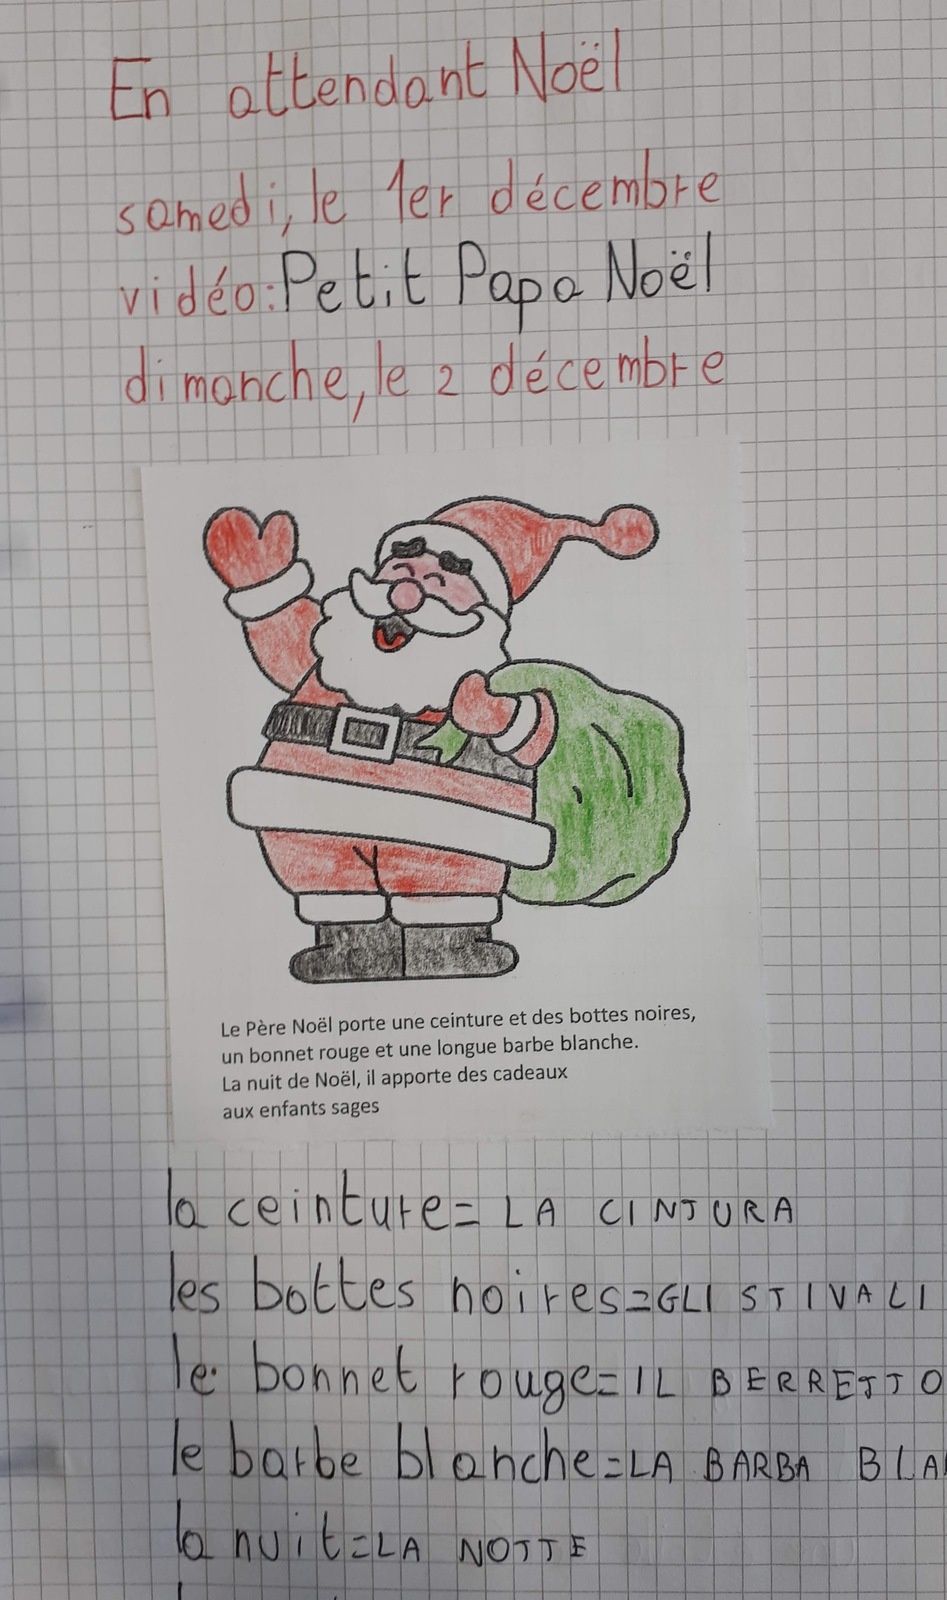 En attendant Noël
samedi, le 1er décembre
vidéo: Petit Papa Noël
dimanche, le 2 décembre
Le Père Noël porte une ceinture et des bottes noires,
un bonnet rouge et une longue barbe blanche.
La nuit de Noël, il apporte des cadeaux
aux enfants sages
la ceinture= LA CINTURA
les bottes noires=GLI STIVALI
le bonnet rouge=IL BERRETTO
le barbe blanche=LA BARBA BLA
la nuit=LA NOTTE